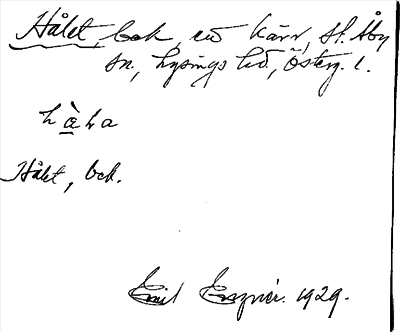 Hålet, bck, vid Kärr, St. Åby
sn, Lysings hd, Österg. l.
Hålet, bck.
Emil 1929.